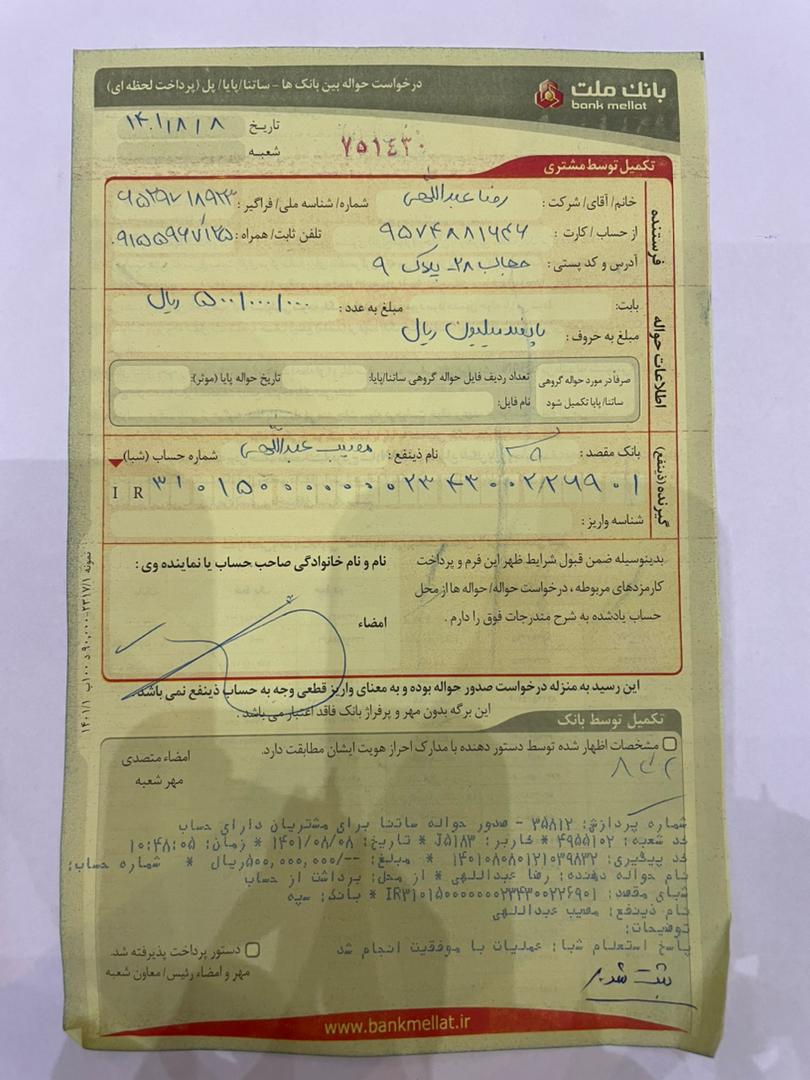 بانک ملت
bank mellat
درخواست حواله بین بانک ها - ساتنا/پایا/ پل (پرداخت لحظه ای)
تاریخ ۱۴۰۱/۸/۸
شعبه
۷۵۱۴۳۰
تکمیل توسط مشتری
فرستنده
خانم/ آقای/ شرکت: رضا عبداللهی شماره/ شناسه ملی/ فراگیر:
از حساب / کارت : ۹۵۷۴۸۸۱۶۴۶ تلفن ثابت/ همراه: ۰۹۱۵۵۹۶۷۱۲۵
آدرس و کد پستی: ۲۸- پلاک ۹
اطلاعات حواله
بابت: مبلغ به عدد: ۵۰۰/۰۰۰/۰۰۰ ریال
مبلغ به حروف: پانصد میلیون ریال
صرفاً در مورد حواله گروهی ساتنا/ پایا تکمیل شود
تعداد ردیف فایل حواله گروهی ساتنا/پایا: تاریخ حواله پایا (موثر):
نام فایل:
گیرنده (ذینفع)
بانک مقصد: نام ذینفع: مصیب عبداللهی شماره حساب (شبا)
IR ۳۱۰۱۵۰۰۰۰۰۰۰۲۳۴۳۰۰۲۲۶۹۰۱
شناسه واریز:
بدینوسیله ضمن قبول شرایط ظهر این فرم و پرداخت
کارمزدهای مربوطه، درخواست حواله/ حواله ها از محل
حساب یادشده به شرح مندرجات فوق را دارم.
نام و نام خانوادگی صاحب حساب یا نماینده وی:
امضاء
این رسید به منزله درخواست صدور حواله بوده و به معنای واریز قطعی وجه به حساب ذینفع نمی باشد.
این برگه بدون مهر و پرفراژ بانک فاقد اعتبار می باشد.
تکمیل توسط بانک
مشخصات اظهار شده توسط دستور دهنده با مدارک احراز هویت ایشان مطابقت دارد.
امضاء متصدی
مهر شعبه
شماره پردازش: ۳۵۸۱۲ - صدور حواله ساتنا برای مشتریان دارای حساب
کد شعبه: ۴۹۵۵۱۰۲ * کاربر: J۵۱۸۳ * تاریخ: ۱۴۰۱/۰۸/۰۸ * زمان: ۱۰:۴۸:۰۵
کد پیگیری: ۱۴۰۱۰۸۰۸۰۱۲۱۰۳۹۸۳۲ * مبلغ: --/۵۰۰,۰۰۰,۰۰۰ریال * شماره حساب:
نام حواله دهنده: رضا عبداللهی * از محل: برداشت از حساب
شبای مقصد: IR۳۱۰۱۵۰۰۰۰۰۰۰۲۳۴۳۰۰۲۲۶۹۰۱ * بانک: سپه
نام ذینفع: مصیب عبداللهی
توضیحات:
پاسخ استعلام شبا: عملیات با موفقیت انجام شد
دستور پرداخت پذیرفته شد.
مهر و امضاء رئیس/ معاون شعبه
ثبت شد
www.bankmellat.ir